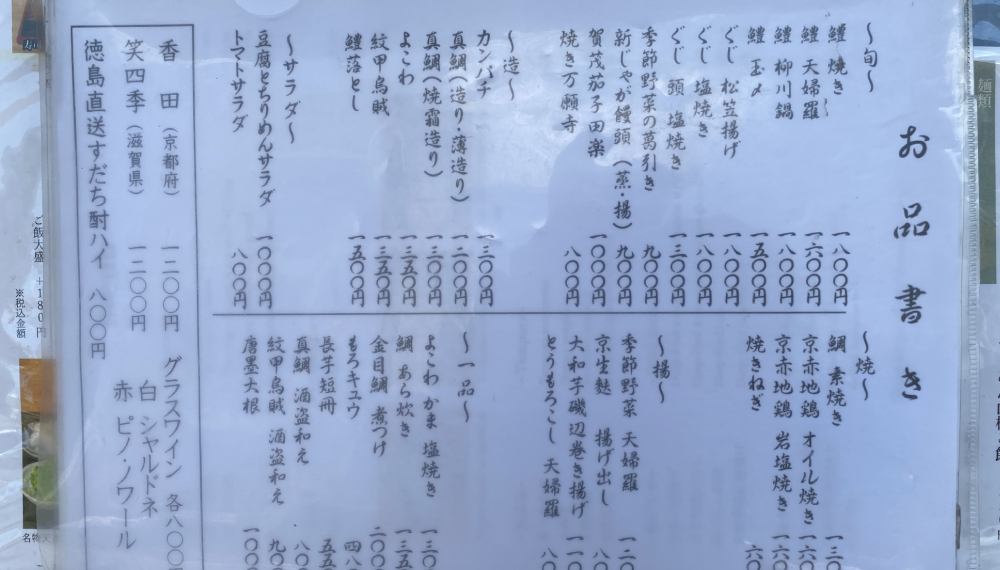 お品書き
〜旬〜
鱧 焼き 一八〇〇円
鱧 天婦羅 一六〇〇円
鱧 柳川鍋 一八〇〇円
鱧 玉〆 一五〇〇円
ぐじ 松笠揚げ 一八〇〇円
ぐじ 塩焼き 一八〇〇円
ぐじ 頭 塩焼き 一三〇〇円
季節野菜の葛引き 九〇〇円
新じゃが饅頭(蒸・揚) 九〇〇円
賀茂茄子田楽 一〇〇〇円
焼き万願寺 八〇〇円
〜造〜
カンパチ 一三〇〇円
真鯛(造り・薄造り) 一二〇〇円
真鯛(焼霜造り) 一三〇〇円
よこわ 一三五〇円
紋甲烏賊 一三五〇円
鱧落とし 一五〇〇円
〜サラダ〜
豆腐とちりめんサラダ 一〇〇〇円
トマトサラダ 八〇〇円
〜焼〜
鯛 素焼き 一三〇
京赤地鶏 オイル焼き 一六〇
京赤地鶏 岩塩焼き 一六〇
焼きねぎ 六〇
〜揚〜
季節野菜 天婦羅 一二〇
京生麩 揚げ出し 八〇
大和芋磯辺巻き揚げ 一一〇
とうもろこし 天婦羅 八〇
〜一品〜
よこわ かま 塩焼き 一三〇
鯛 あら炊き 一三五
金目鯛 煮つけ 二〇〇
もろキュウ 四八
長芋短冊 五五
真鯛 酒盗和え 八〇
紋甲烏賊 酒盗和え 九〇
唐墨大根 一〇〇
香田(京都府) 一二〇〇円
笑四季(滋賀県) 一二〇〇円
徳島直送すだち酎ハイ 八〇〇円
グラスワイン 各八〇〇円
白 シャルドネ
赤 ピノ・ノワール
ご飯大盛 +180円
※税込金額
麺類